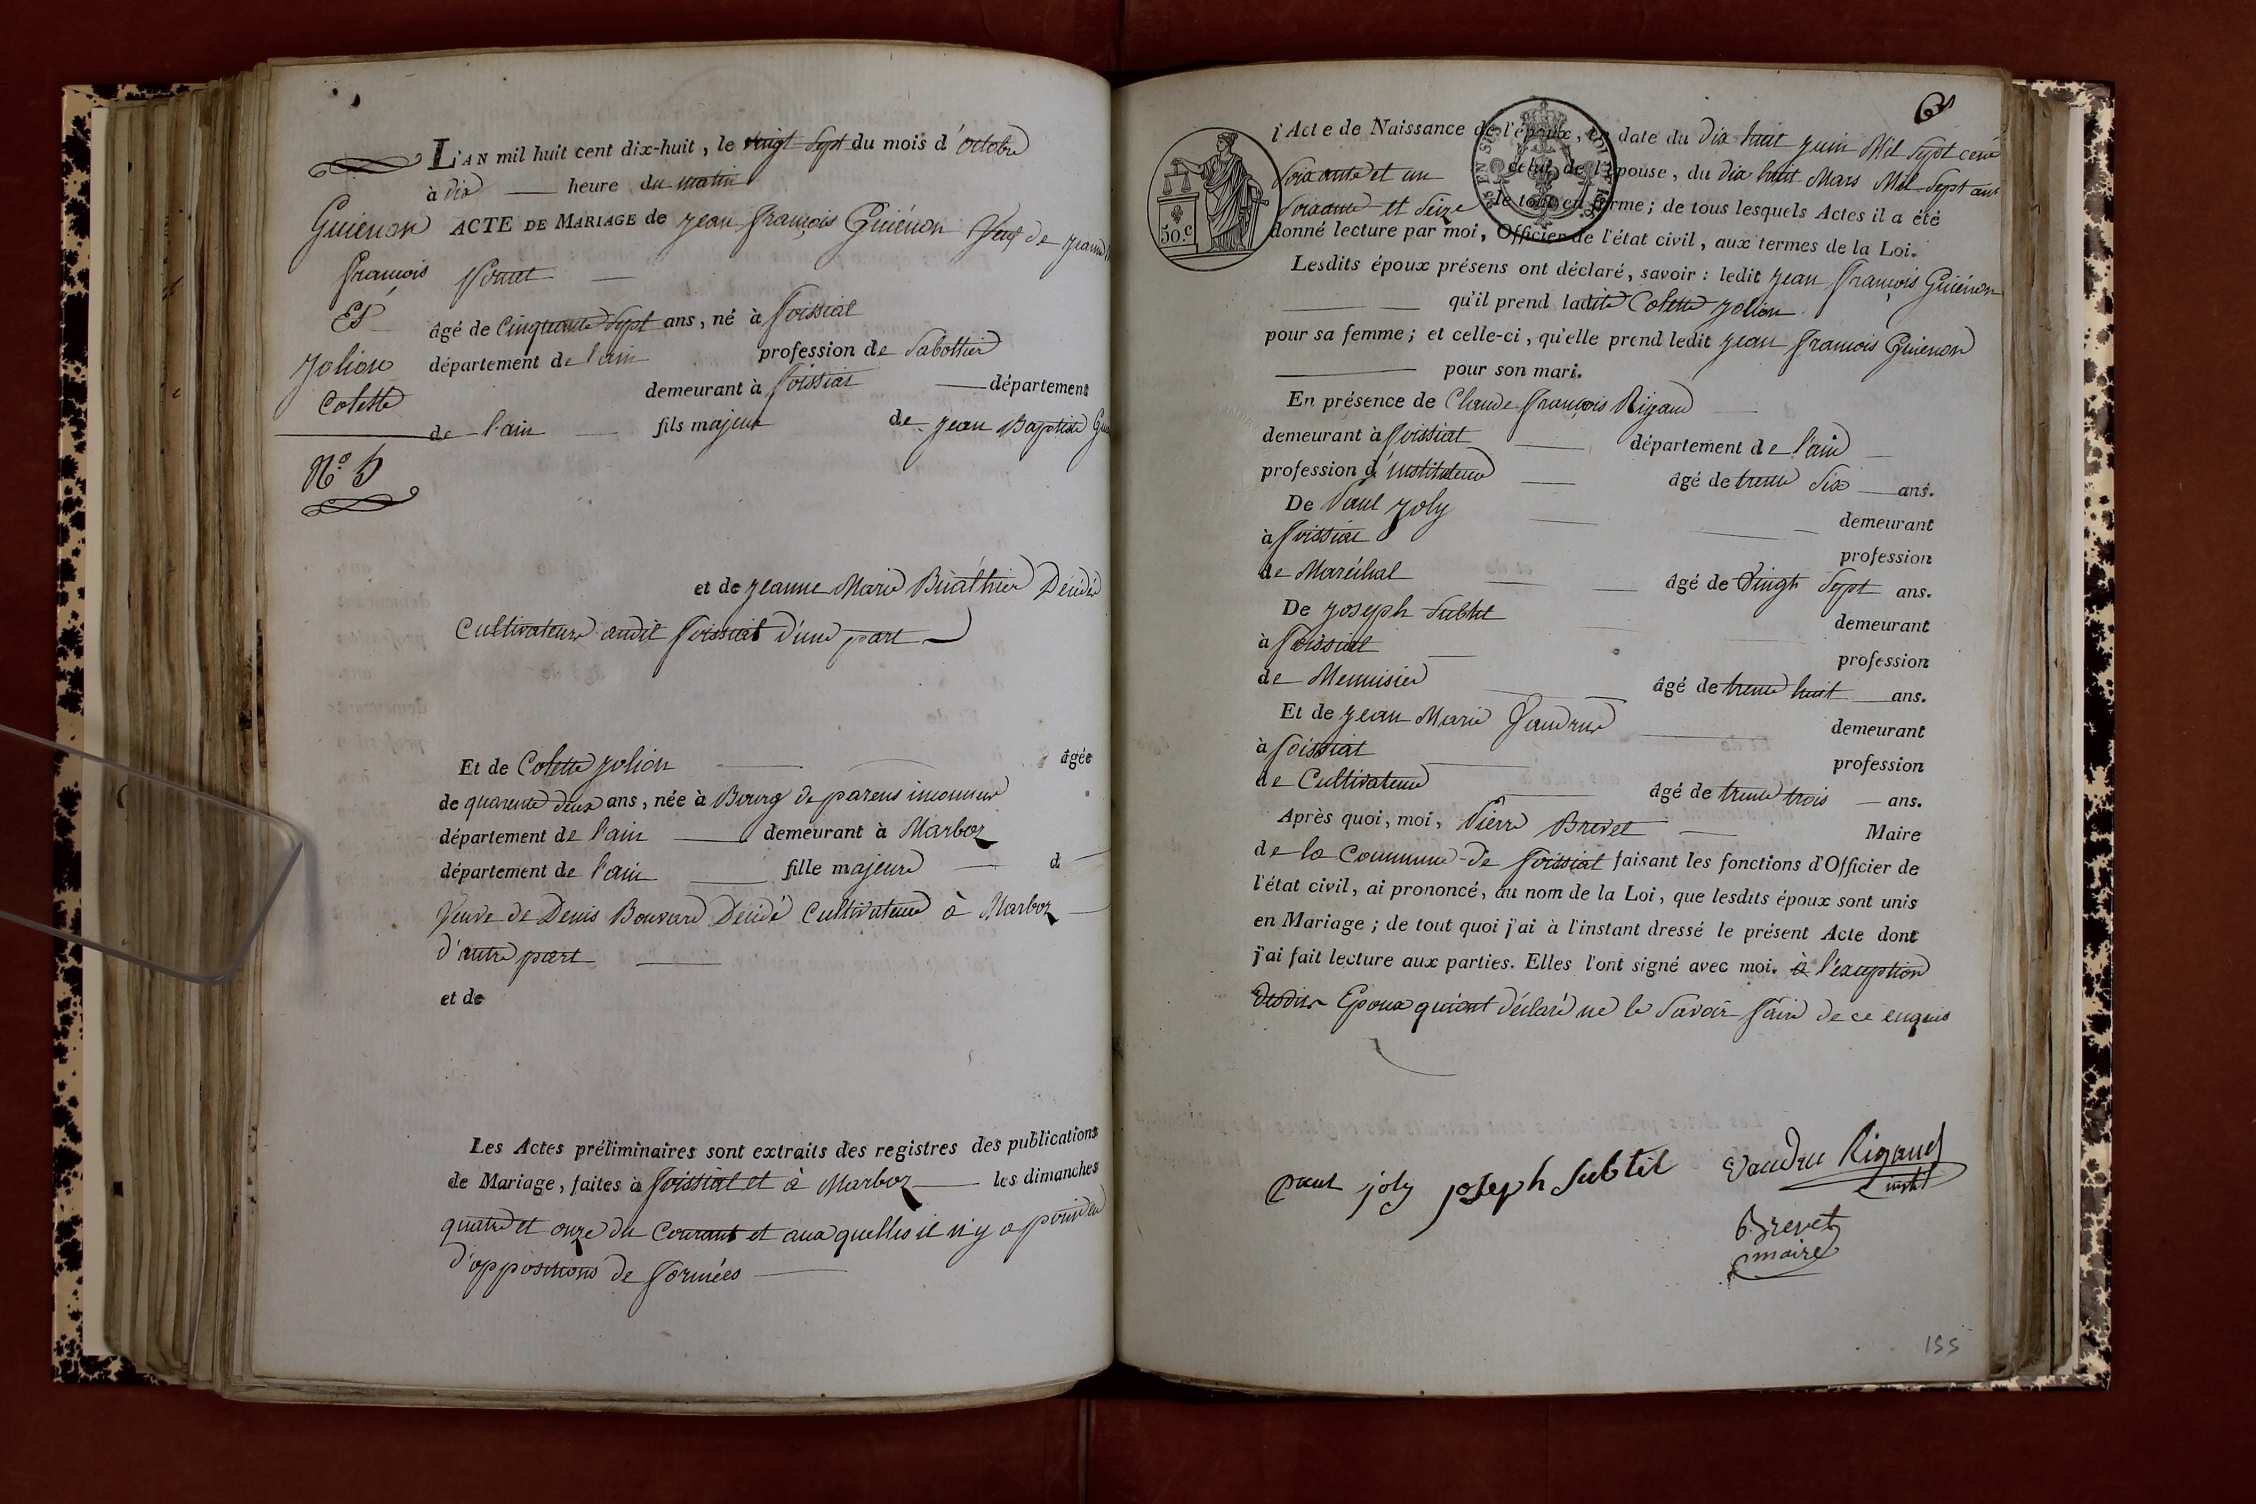 L'AN mil huit cent dix-huit, le vingt Sept du mois d'octobre
à dix heure du matin
Guienon
François
Et
Jolion
Colette
N.° 5
ACTE DE MARIAGE de Jean François Guiénon Veuf de
âgé de Cinquante Sept ans, né à Foissiat
département de l'ain profession de Sabottier
demeurant à Foissiat département
de l'ain fils majeur de Jean Baptiste
et de Jeanne Marie Décédée
Cultivateurs audit Foissiat d'une part
Et de Colette Jolion âgée
de quarente deux ans, née à Bourg de parens inconnus
département de l'ain demeurant à Marboz
département de l'ain fille majeure d
Veuve de Denis Bouvard Décédé Cultivateur à Marboz
d'autre part
et de
Les Actes préliminaires sont extraits des registres des publications
de Mariage, faites à Foissiat et à Marboz les dimanches
quatre et onze du Courant et aux quelles il n'y a point eu
d'oppositions de formées
6
50.c
l'Acte de Naissance de l'époux, en date du dix huit Juin Mil Sept cent
Soixante et un celui de l'épouse, du dix huit Mars Mil Sept cent
Soixante et Seize le tout en forme; de tous lesquels Actes il a été
donné lecture par moi, Officier de l'état civil, aux termes de la Loi.
Lesdits époux présens ont déclaré, savoir: ledit Jean François Guiénon
qu'il prend ladite Colette Jolion
pour sa femme; et celle-ci, qu'elle prend ledit Jean François Guienon
pour son mari.
En présence de Claude François Rigaud
demeurant à Foissiat département de l'ain
profession d'instituteur âgé de trente Six ans.
De Paul Joly demeurant
à Foissiat profession
de Maréchal âgé de Vingt Sept ans.
De Joseph Subtil demeurant
à Foissiat profession
de Menuisier âgé de trente huit ans.
Et de Jean Marie Vaudrue demeurant
à Foissiat profession
de Cultivateur âgé de trente trois ans.
Après quoi, moi, Pierre Brevet Maire
de la Commune de Foissiat faisant les fonctions d'Officier de
l'état civil, ai prononcé, au nom de la Loi, que lesdits époux sont unis
en Mariage; de tout quoi j'ai à l'instant dressé le présent Acte dont
j'ai fait lecture aux parties. Elles l'ont signé avec moi. à l'exception
desdits Epoux qui ont déclaré ne le Savoir faire de ce enquis
paul joly joseph Subtil Vaudru Rigaud
inst.t
Brevet
maire
155